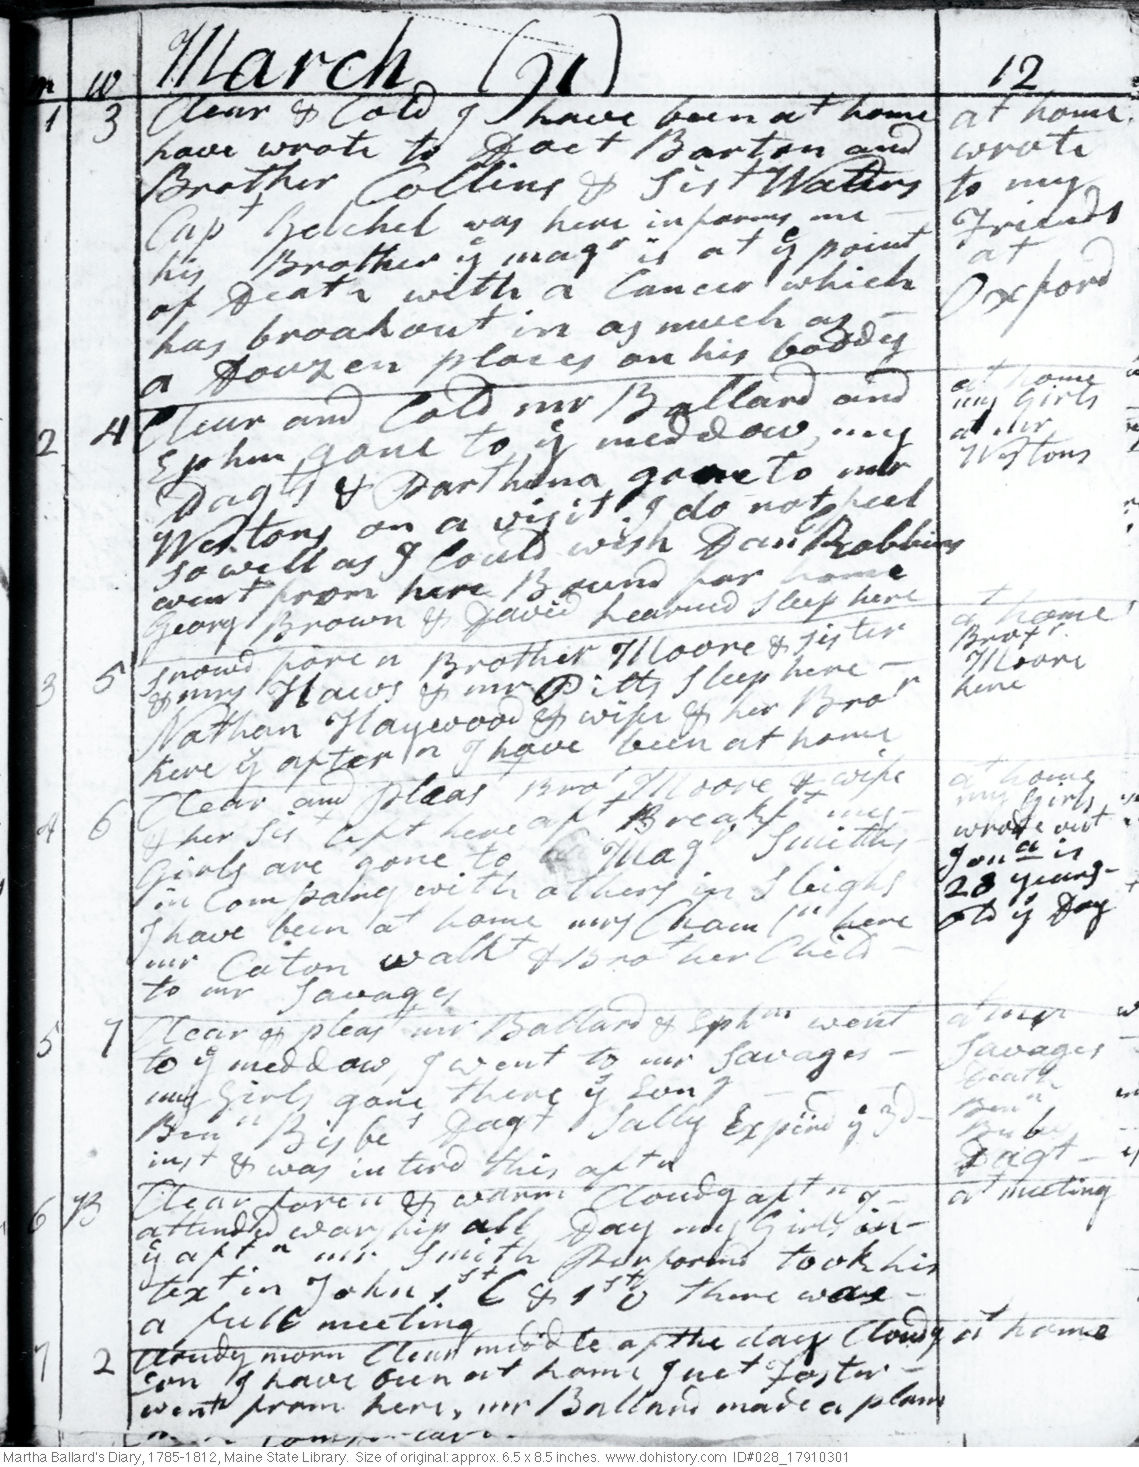 m w March (91) 12
1 3 Clear & Cold I have been at home at home.
have wrote to Doct Barton and wrote
Brother Collins & Sist Waters to my
Capt Getchel was here informs me — Friends
his Brother ye magr is at ye point at
of Death with a Cancer which Oxford
has broak out in as much as —
a Douzen places on his boddy
2 4 Clear and Cold mr Ballard and at home
Ephm gone to ye meddow, my my Girls
Dagts & Parthena gone to mr at mr
Westons on a visit. I do not feel Westons
so well as I Could wish Dan Robbins
went from here Bound for home
Georg Brown & David Learned sleep here
3 5 snowd foren Brother Moore & sister at home
& mrs Haws & mr Pitts sleep here — Brot
Nathan Haywood & wife & her Bror Moore
here ye aftern I have been at home here
4 6 Clear and pleast Bror Moore & wife at home
& her Sist left here aft Breakft my — my Girls
Girls are gone to Magr Smiths wrode out
in Company with others in Sleighs Jona is
I have been at home mrs Chamln here 28 years
mr Caton walkt & Brother Child — old ye Day
to mr Savages
5 7 Clear & pleast mr Ballard & Ephm went at mr
to ye meddow, I went to mr Savages — Savages
my Girls gone there ye Son of Death
Benn Bisbe Dagt Sally Expird ye 3d — Benn
inst & was interd this aftn Dagt —
6 B Clear foren & warm Cloudy aftn I — at meeting
attended warship all Day my Girls in —
ye aftn mr Smith Performd took his
text in John 1st C & 1st v there was —
a full meeting
7 2 Cloudy morn Clear middle of the day Cloudy at home
Evn I have been at home Juet Foster —
went from here, mr Ballard made a plan
Martha Ballard's Diary, 1785-1812, Maine State Library. Size of original: approx. 6.5 x 8.5 inches. www.dohistory.com ID#028_17910301